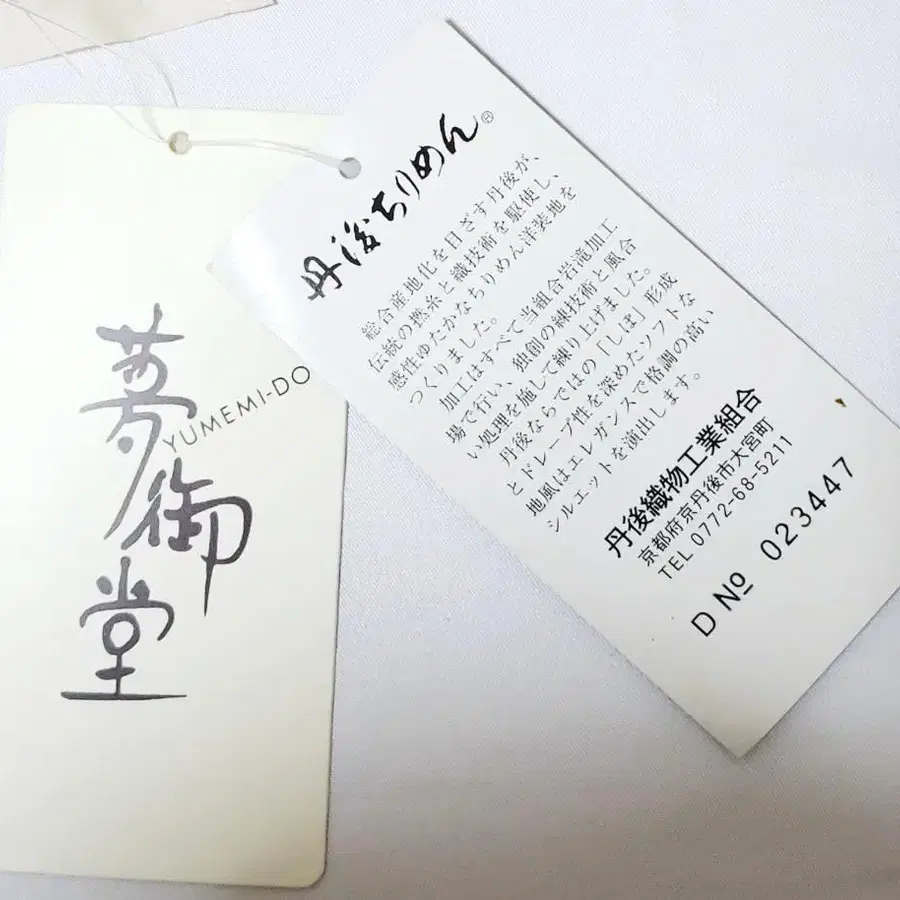 夢御堂
YUMEMI-DO
丹後ちりめん®
総合産地化を目ざす丹後が、
伝統の撚糸と織技術を駆使し、
感性ゆたかなちりめん洋装地を
つくりました。
加工はすべて当組合岩滝加工
場で行い、独創の練技術と風合
い処理を施して練り上げました。
丹後ならではの「しぼ」形成
とドレープ性を深めたソフトな
地風はエレガンスで格調の高い
シルエットを演出します。
丹後織物工業組合
京都府京丹後市大宮町
TEL 0772-68-5211
D № 023447